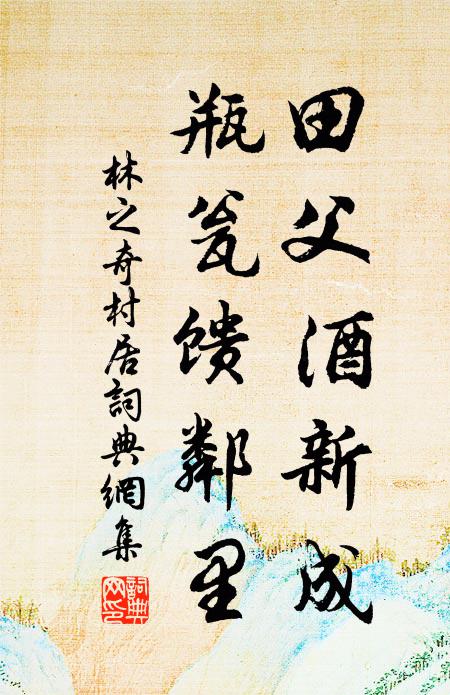 田父酒新成
瓶瓮馈鄰里
林之奇村居詞典網集
詞典
网印